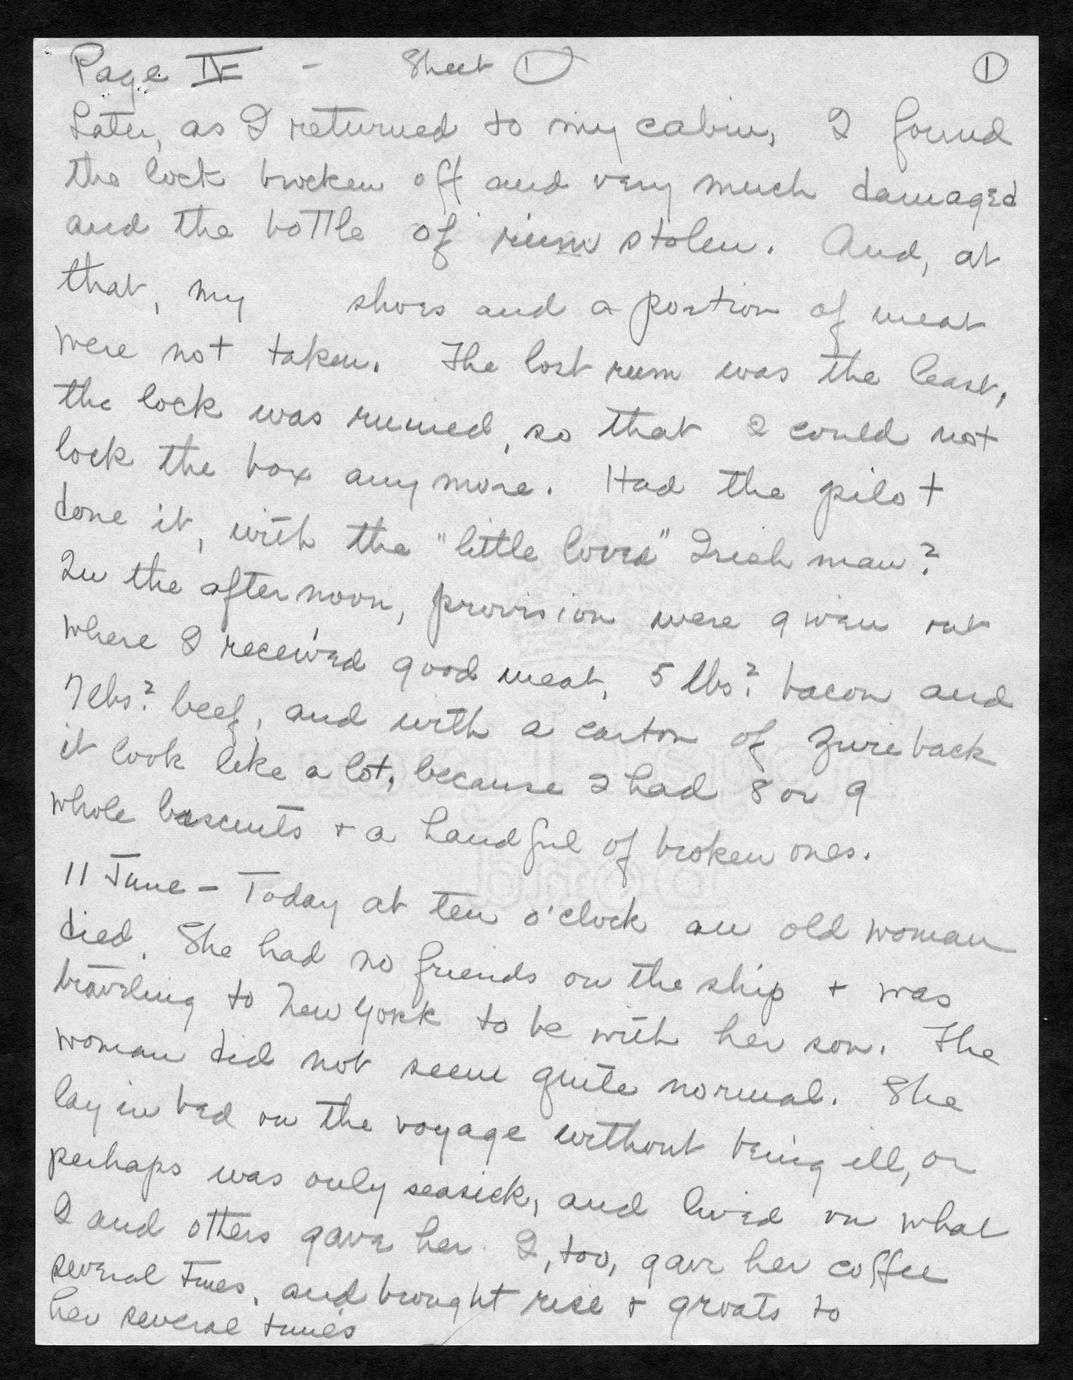 Page IV - Sheet 1 1
Later, as I returned to my cabin, I found
the lock broken off and very much damaged
and the bottle of rum stolen. And, at
that, my shoes and a portion of meat
were not taken. The lost rum was the least,
the lock was ruined, so that I could not
lock the box any more. Had the pilot
done it, with the "little loved" Irish man?
In the afternoon, provision were given out
where I received good meat, 5 lbs? bacon and
7 lbs? beef, and with a carton of Zwieback
it look like a lot, because I had 8 or 9
whole bascuits + a handful of broken ones.
11 June - Today at ten o'clock an old woman
died. She had no friends on the ship + was
traveling to New York to be with her son. The
woman did not seem quite normal. She
lay in bed on the voyage without being ill, or
perhaps was only seasick, and lived on what
I and others gave her. I, too, gave her coffee
several times, and brought rise + groats to
her several times